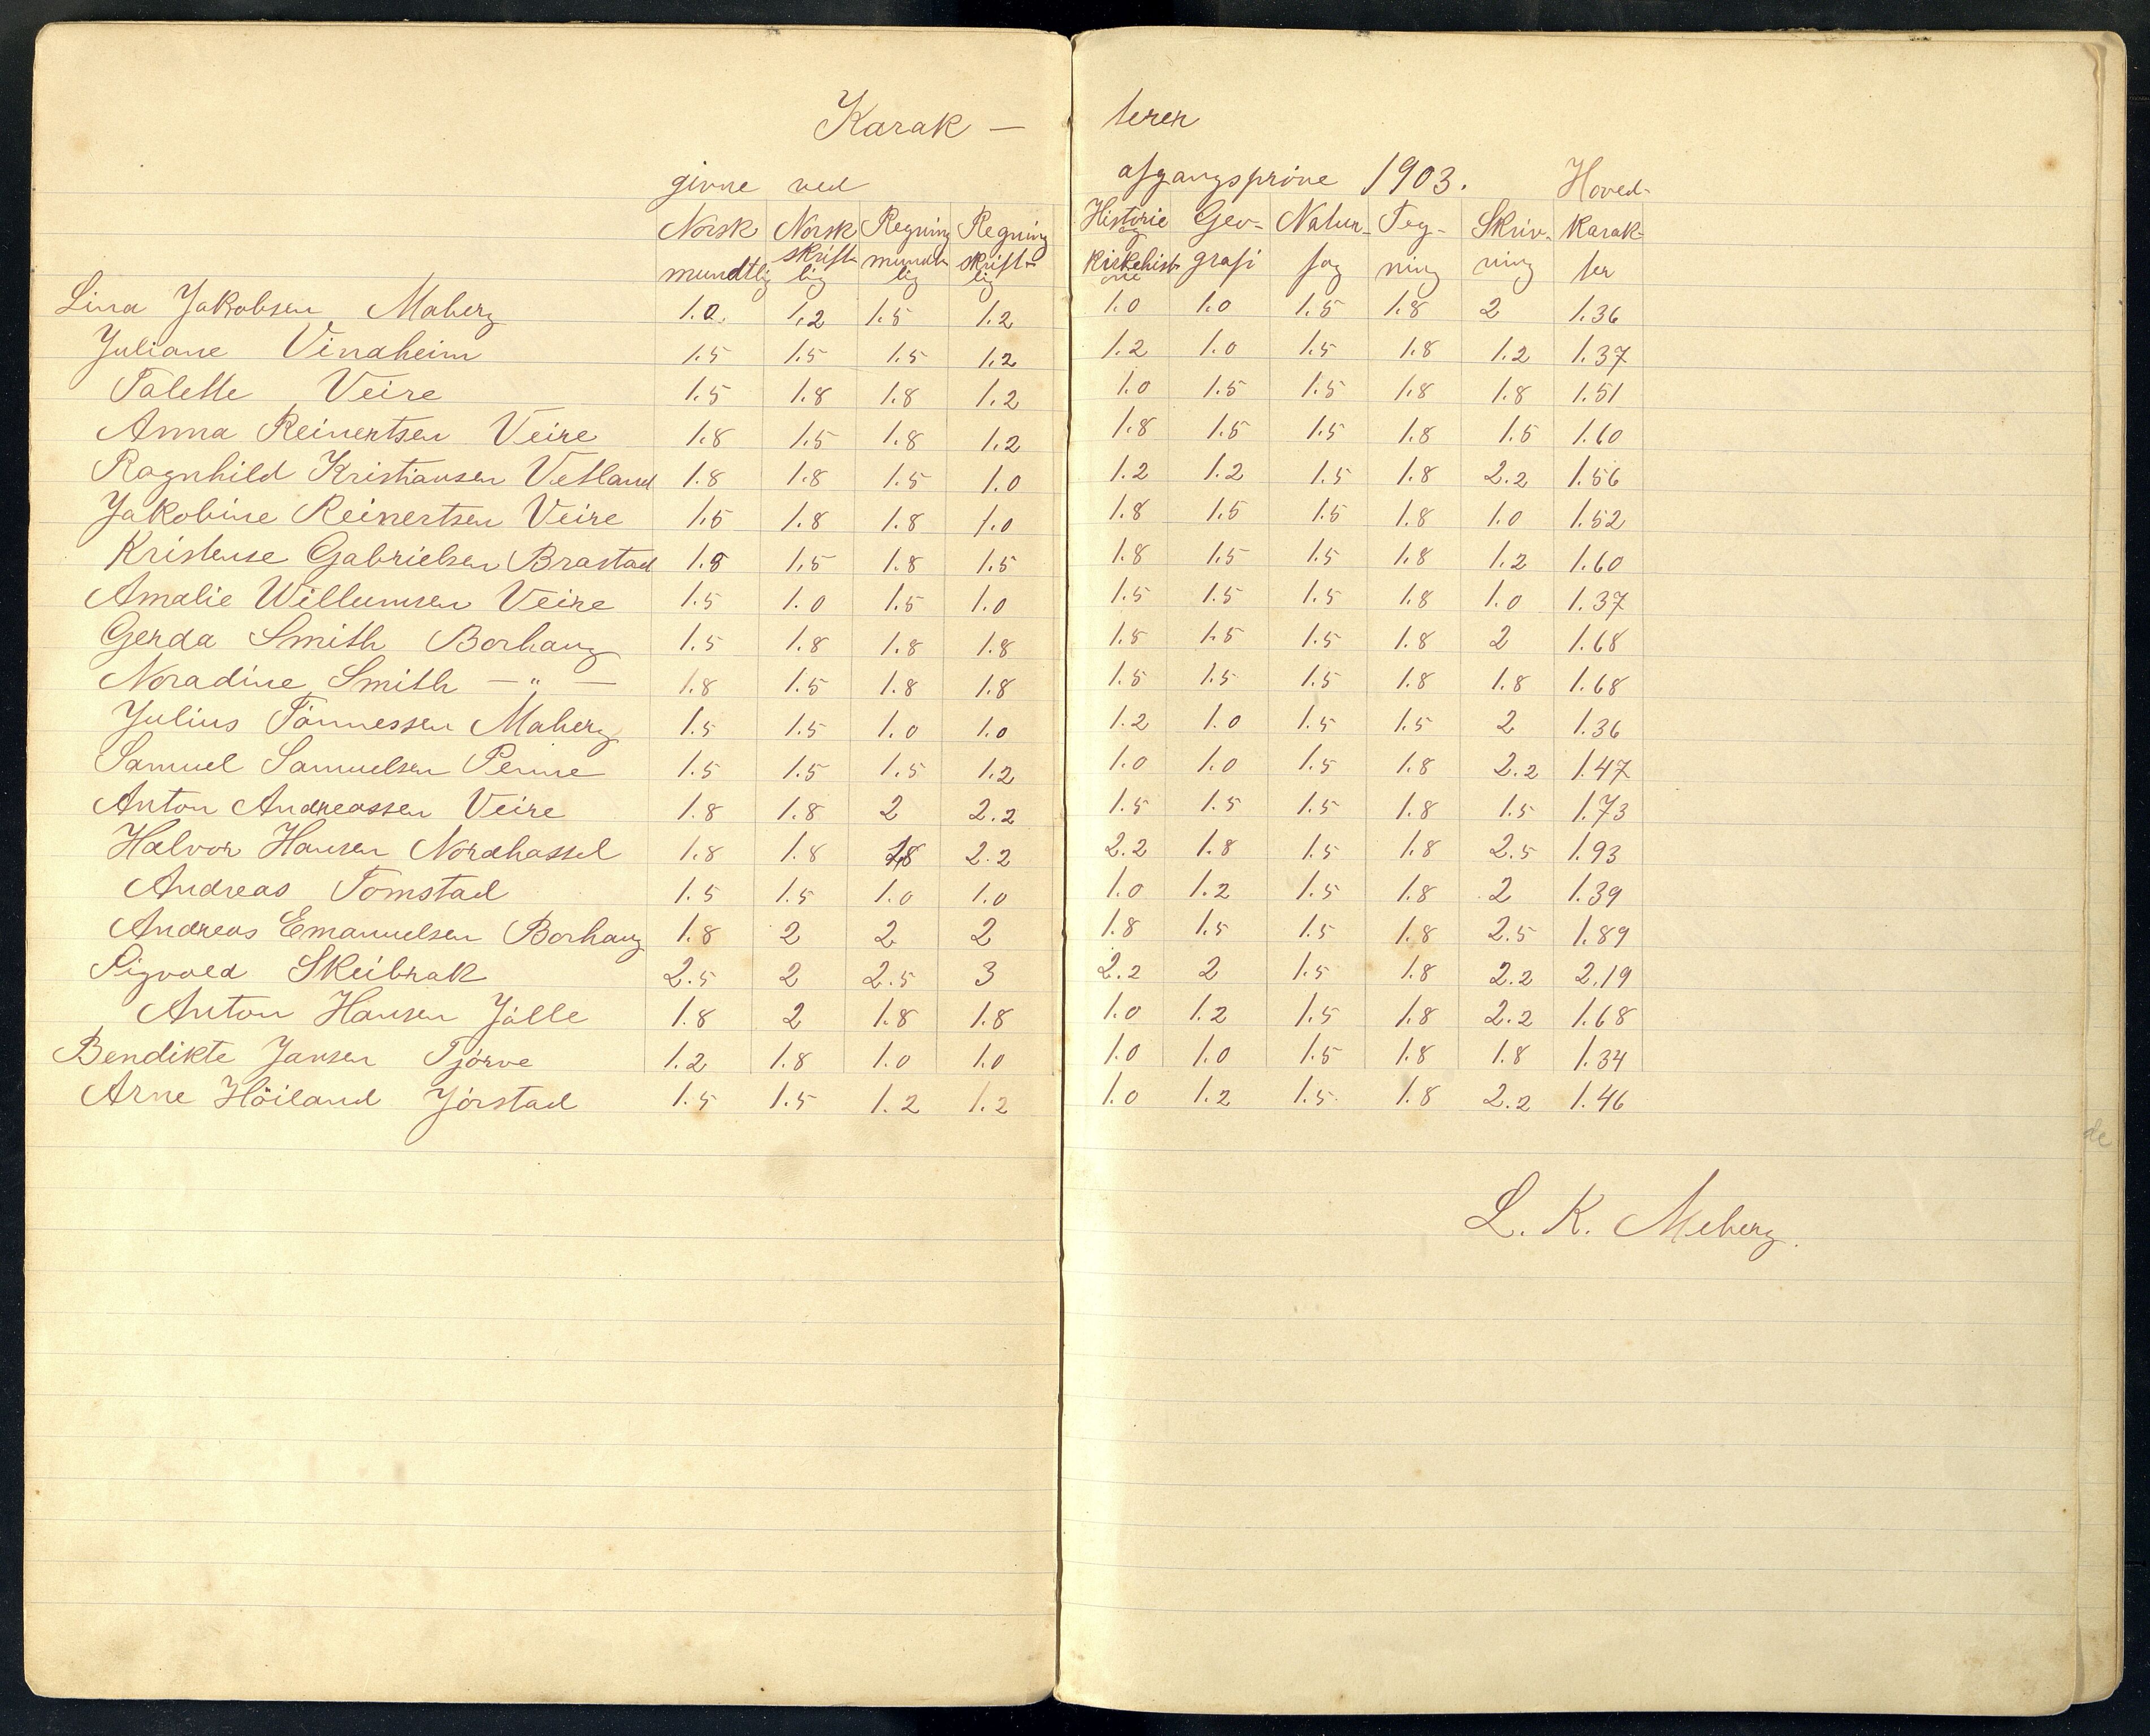 Karak — terer
givne ved afgangsprøve 1903. Hoved-
Norsk Norsk Regning Regning Historie Geo- Natur- Teg- Skriv- Karak-
mundtlig skrift- mundt- skrift- og grafi fag ning ning ter
lig lig lig kirkehisto-
rie
Lina Jakobsen Maberg 1.0 1.2 1.5 1.2 1.0 1.0 1.5 1.8 2 1.36
Juliane Vindheim 1.5 1.5 1.5 1.2 1.2 1.0 1.5 1.8 1.2 1.37
Talette Veire 1.5 1.8 1.8 1.2 1.0 1.5 1.5 1.8 1.8 1.51
Anna Reinertsen Veire 1.8 1.5 1.8 1.2 1.8 1.5 1.5 1.8 1.5 1.60
Ragnhild Kristiansen Vetland 1.8 1.8 1.5 1.0 1.2 1.2 1.5 1.8 2.2 1.56
Jakobine Reinertsen Veire 1.5 1.8 1.8 1.0 1.8 1.5 1.5 1.8 1.0 1.52
Kristense Gabrielsen Brastad 1.8 1.5 1.8 1.5 1.8 1.5 1.5 1.8 1.2 1.60
Amalie Willumsen Veire 1.5 1.0 1.5 1.0 1.5 1.5 1.5 1.8 1.0 1.37
Gerda Smith Borhaug 1.5 1.8 1.8 1.8 1.5 1.5 1.5 1.8 2 1.68
Noradine Smith — „ — 1.8 1.5 1.8 1.8 1.5 1.5 1.5 1.8 1.8 1.68
Julius Tønnessen Maberg 1.5 1.5 1.0 1.0 1.2 1.0 1.5 1.5 2 1.36
Samuel Samuelsen Penne 1.5 1.5 1.5 1.2 1.0 1.0 1.5 1.8 2.2 1.47
Anton Andreassen Veire 1.8 1.8 2 2.2 1.5 1.5 1.5 1.8 1.5 1.73
Halvor Hansen Nordhassel 1.8 1.8 1.8 2.2 2.2 1.8 1.5 1.8 2.5 1.93
Andreas Tomstad 1.5 1.5 1.0 1.0 1.0 1.2 1.5 1.8 2 1.39
Andreas Emanuelsen Borhaug 1.8 2 2 2 1.8 1.5 1.5 1.8 2.5 1.89
Sigvald Skeibrak 2.5 2 2.5 3 2.2 2 1.5 1.8 2.2 2.19
Anton Hansen Jølle 1.8 2 1.8 1.8 1.0 1.2 1.5 1.8 2.2 1.68
Bendikte Jansen Tjørve 1.2 1.8 1.0 1.0 1.0 1.0 1.5 1.8 1.8 1.34
Arne Høiland Jørstad 1.5 1.5 1.2 1.2 1.0 1.2 1.5 1.8 2.2 1.46
de
L. K. Meberg.